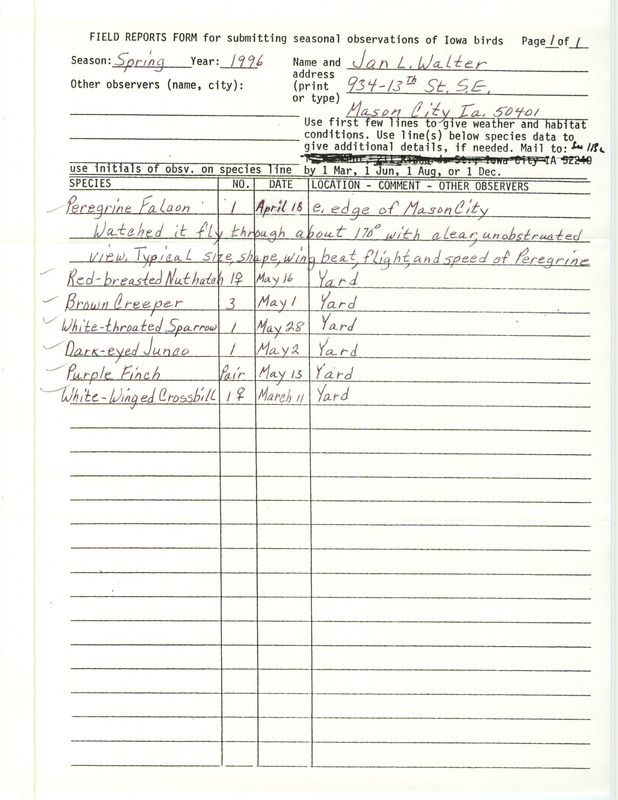 FIELD REPORTS FORM for submitting seasonal observations of Iowa birds Page 1 of 1
Season: Spring Year: 1996 Name and Jan L. Walter
address
Other observers (name, city): (print 934-13th St. S.E.
or type)
Mason City Ia. 50401
Use first few lines to give weather and habitat
conditions. Use line(s) below species data to
give additional details, if needed. Mail to:
Iowa City IA 52240
use initials of obsv. on species line by 1 Mar, 1 Jun, 1 Aug, or 1 Dec.
SPECIES NO. DATE LOCATION - COMMENT - OTHER OBSERVERS
Peregrine Falcon 1 April 18 e. edge of Mason City
Watched it fly through about 170° with a clear, unobstructed
view. Typical size, shape, wing beat, flight, and speed of Peregrine
Red-breasted Nuthatch 1♀ May 16 Yard
Brown Creeper 3 May 1 Yard
White-throated Sparrow 1 May 28 Yard
Dark-eyed Junco 1 May 2 Yard
Purple Finch Pair May 13 Yard
White-Winged Crossbill 1♀ March 11 Yard